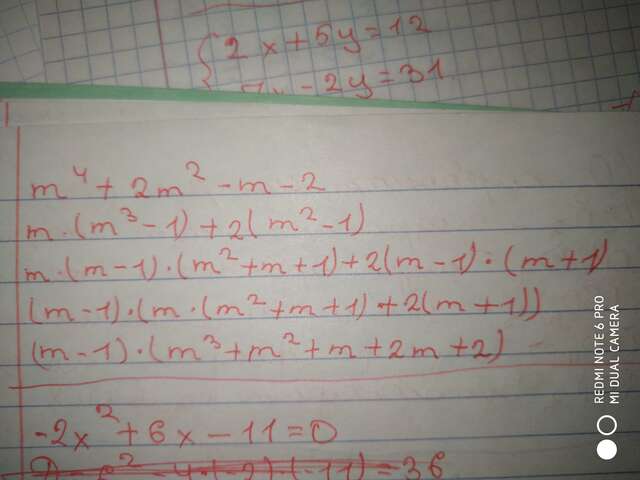 2x+5y=12
-2y=31
m⁴+2m²-m-2
m·(m³-1)+2(m²-1)
m·(m-1)·(m²+m+1)+2(m-1)·(m+1)
(m-1)·(m·(m²+m+1)+2(m+1))
(m-1)·(m³+m²+m+2m+2)
-2x²+6x-11=0
=36
REDMI NOTE 6 PRO
MI DUAL CAMERA